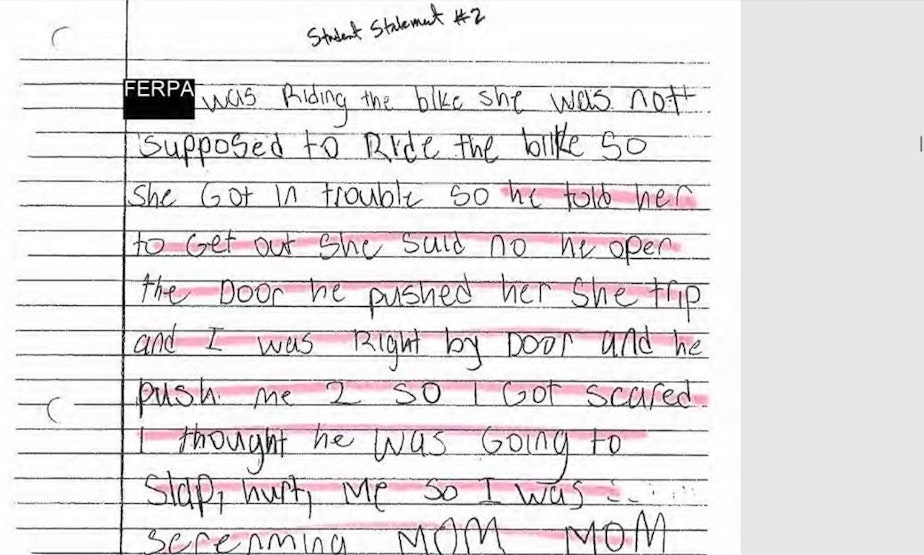 Student Statement #2
FERPA was Riding the bike she was not
supposed to Ride the bike so
She Got in trouble so he told her
to Get out She said no he open
the Door he pushed her She trip
and I was Right by Door and he
push me 2 so I Got scared
I thought he was Going to
Slap, hurt, Me so I was
screnming MOM MOM